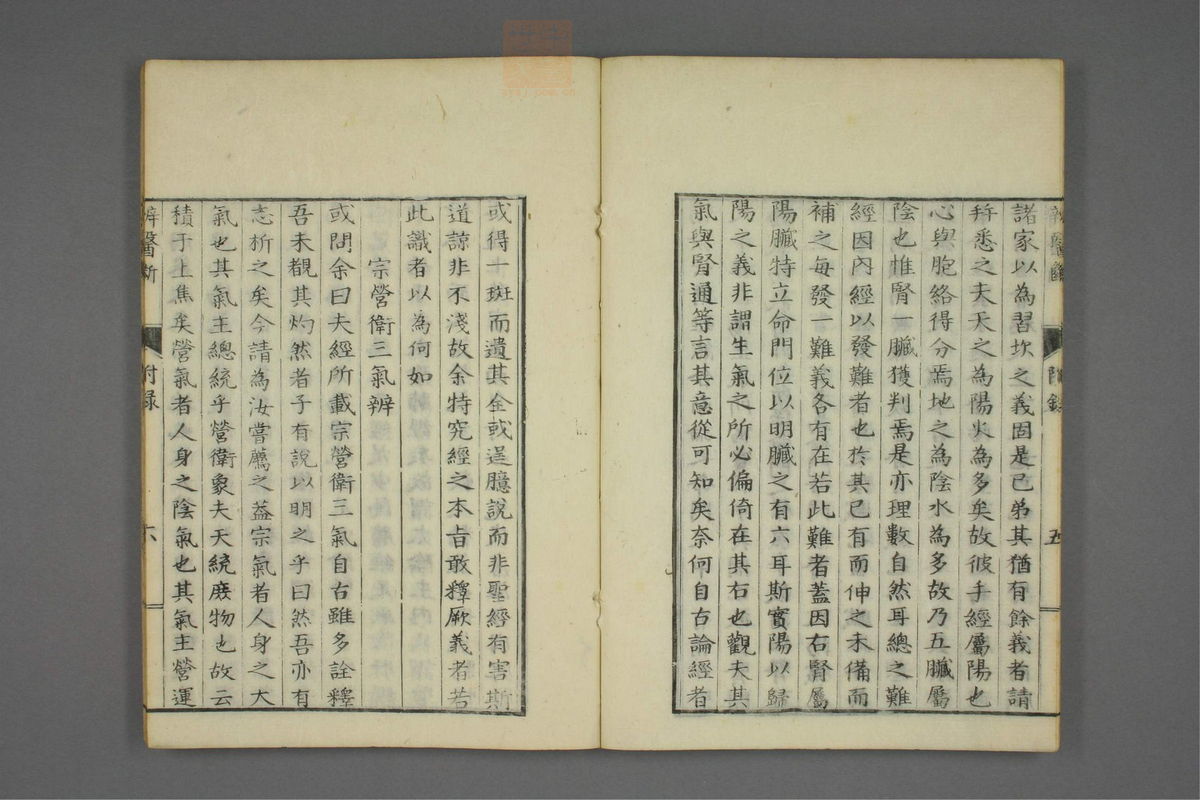 諸家以為習坎之義固是已弟其猶有餘義者請
稱悉之夫天之為陽火為多矣故彼手經屬陽也
心與胞絡得分焉地之為陰水為多故乃五臟屬
陰也惟腎一臟獲判焉是亦理數自然耳總之難
經因內經以發難者也於其已有而伸之未備而
補之每發一難義各有在若此難者蓋因右腎屬
陽臟特立命門位以明臟之有六耳斯實陽以歸
陽之義非謂生氣之所必偏倚在其右也觀夫其
氣與腎通等言其意從可知矣奈何自古論經者
或得一斑而遺其全或逞臆說而非聖經有害斯
道諒非不淺故余特究經之本旨敢釋厥義者若
此識者以為何如
宗營衛三氣辨
或問余曰夫經所載宗營衛三氣自古雖多詮釋
吾未覩其灼然者子有說以明之乎曰然吾亦有
志析之矣今請為汝嘗薦之蓋宗氣者人身之大
氣也其氣主總統乎營衛象夫天統庶物也故云
積于上焦矣營氣者人身之陰氣也其氣主營運
辨醫斷 附錄 六